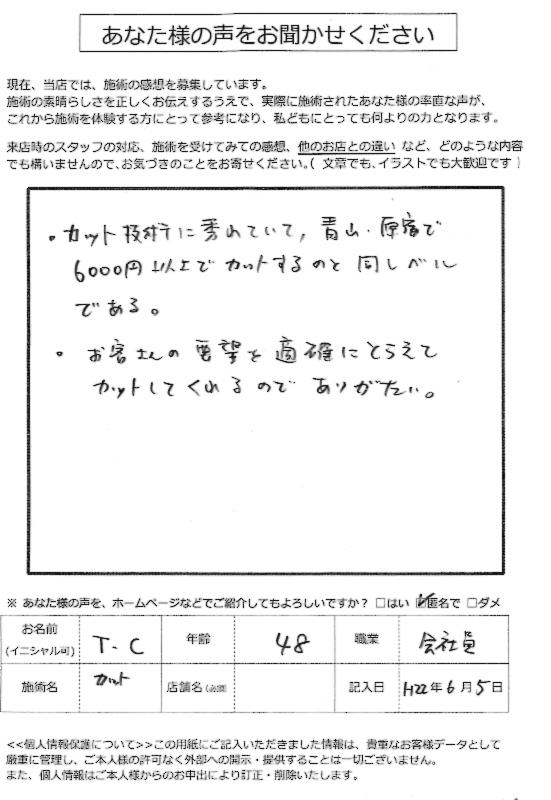 あなた様の声をお聞かせください
現在、当店では、施術の感想を募集しています。
施術の素晴らしさを正しくお伝えするうえで、実際に施術されたあなた様の率直な声が、
これから施術を体験する方にとって参考になり、私どもにとっても何よりの力となります。
来店時のスタッフの対応、施術を受けてみての感想、他のお店との違い など、どのような内容
でも構いませんので、お気づきのことをお寄せください。( 文章でも、イラストでも大歓迎です )
・カット技術に秀れていて, 青山・原宿で
6000円以上でカットするのと同レベル
である。
・お客さんの要望を適確にとらえて
カットしてくれるのでありがたい。
※ あなた様の声を、ホームページなどでご紹介してもよろしいですか? □はい ☑匿名で □ダメ
お名前 (イニシャル可) T・C 年齢 48 職業 会社員
施術名 カット 店舗名 記入日 H22年6月5日
<<個人情報保護について>>この用紙にご記入いただきました情報は、貴重なお客様データとして
厳重に管理し、ご本人様の許可なく外部への開示・提供することは一切ございません。
また、個人情報はご本人様からのお申出により訂正・削除いたします。